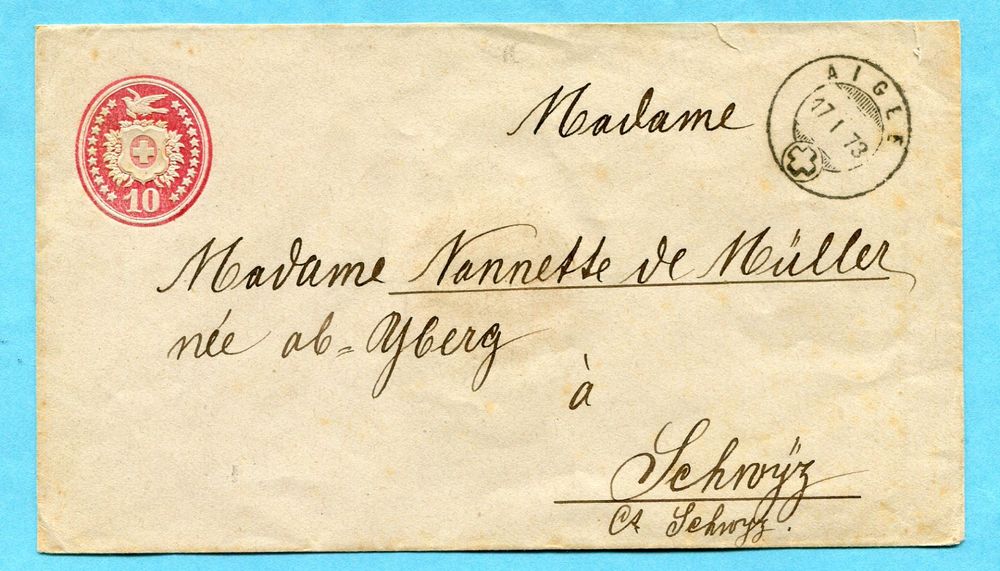 10
AIGLE
17 I 73
Madame
Madame Nannette de Müller
née ab=Yberg
à
Schwÿz
Ct. Schwyz.